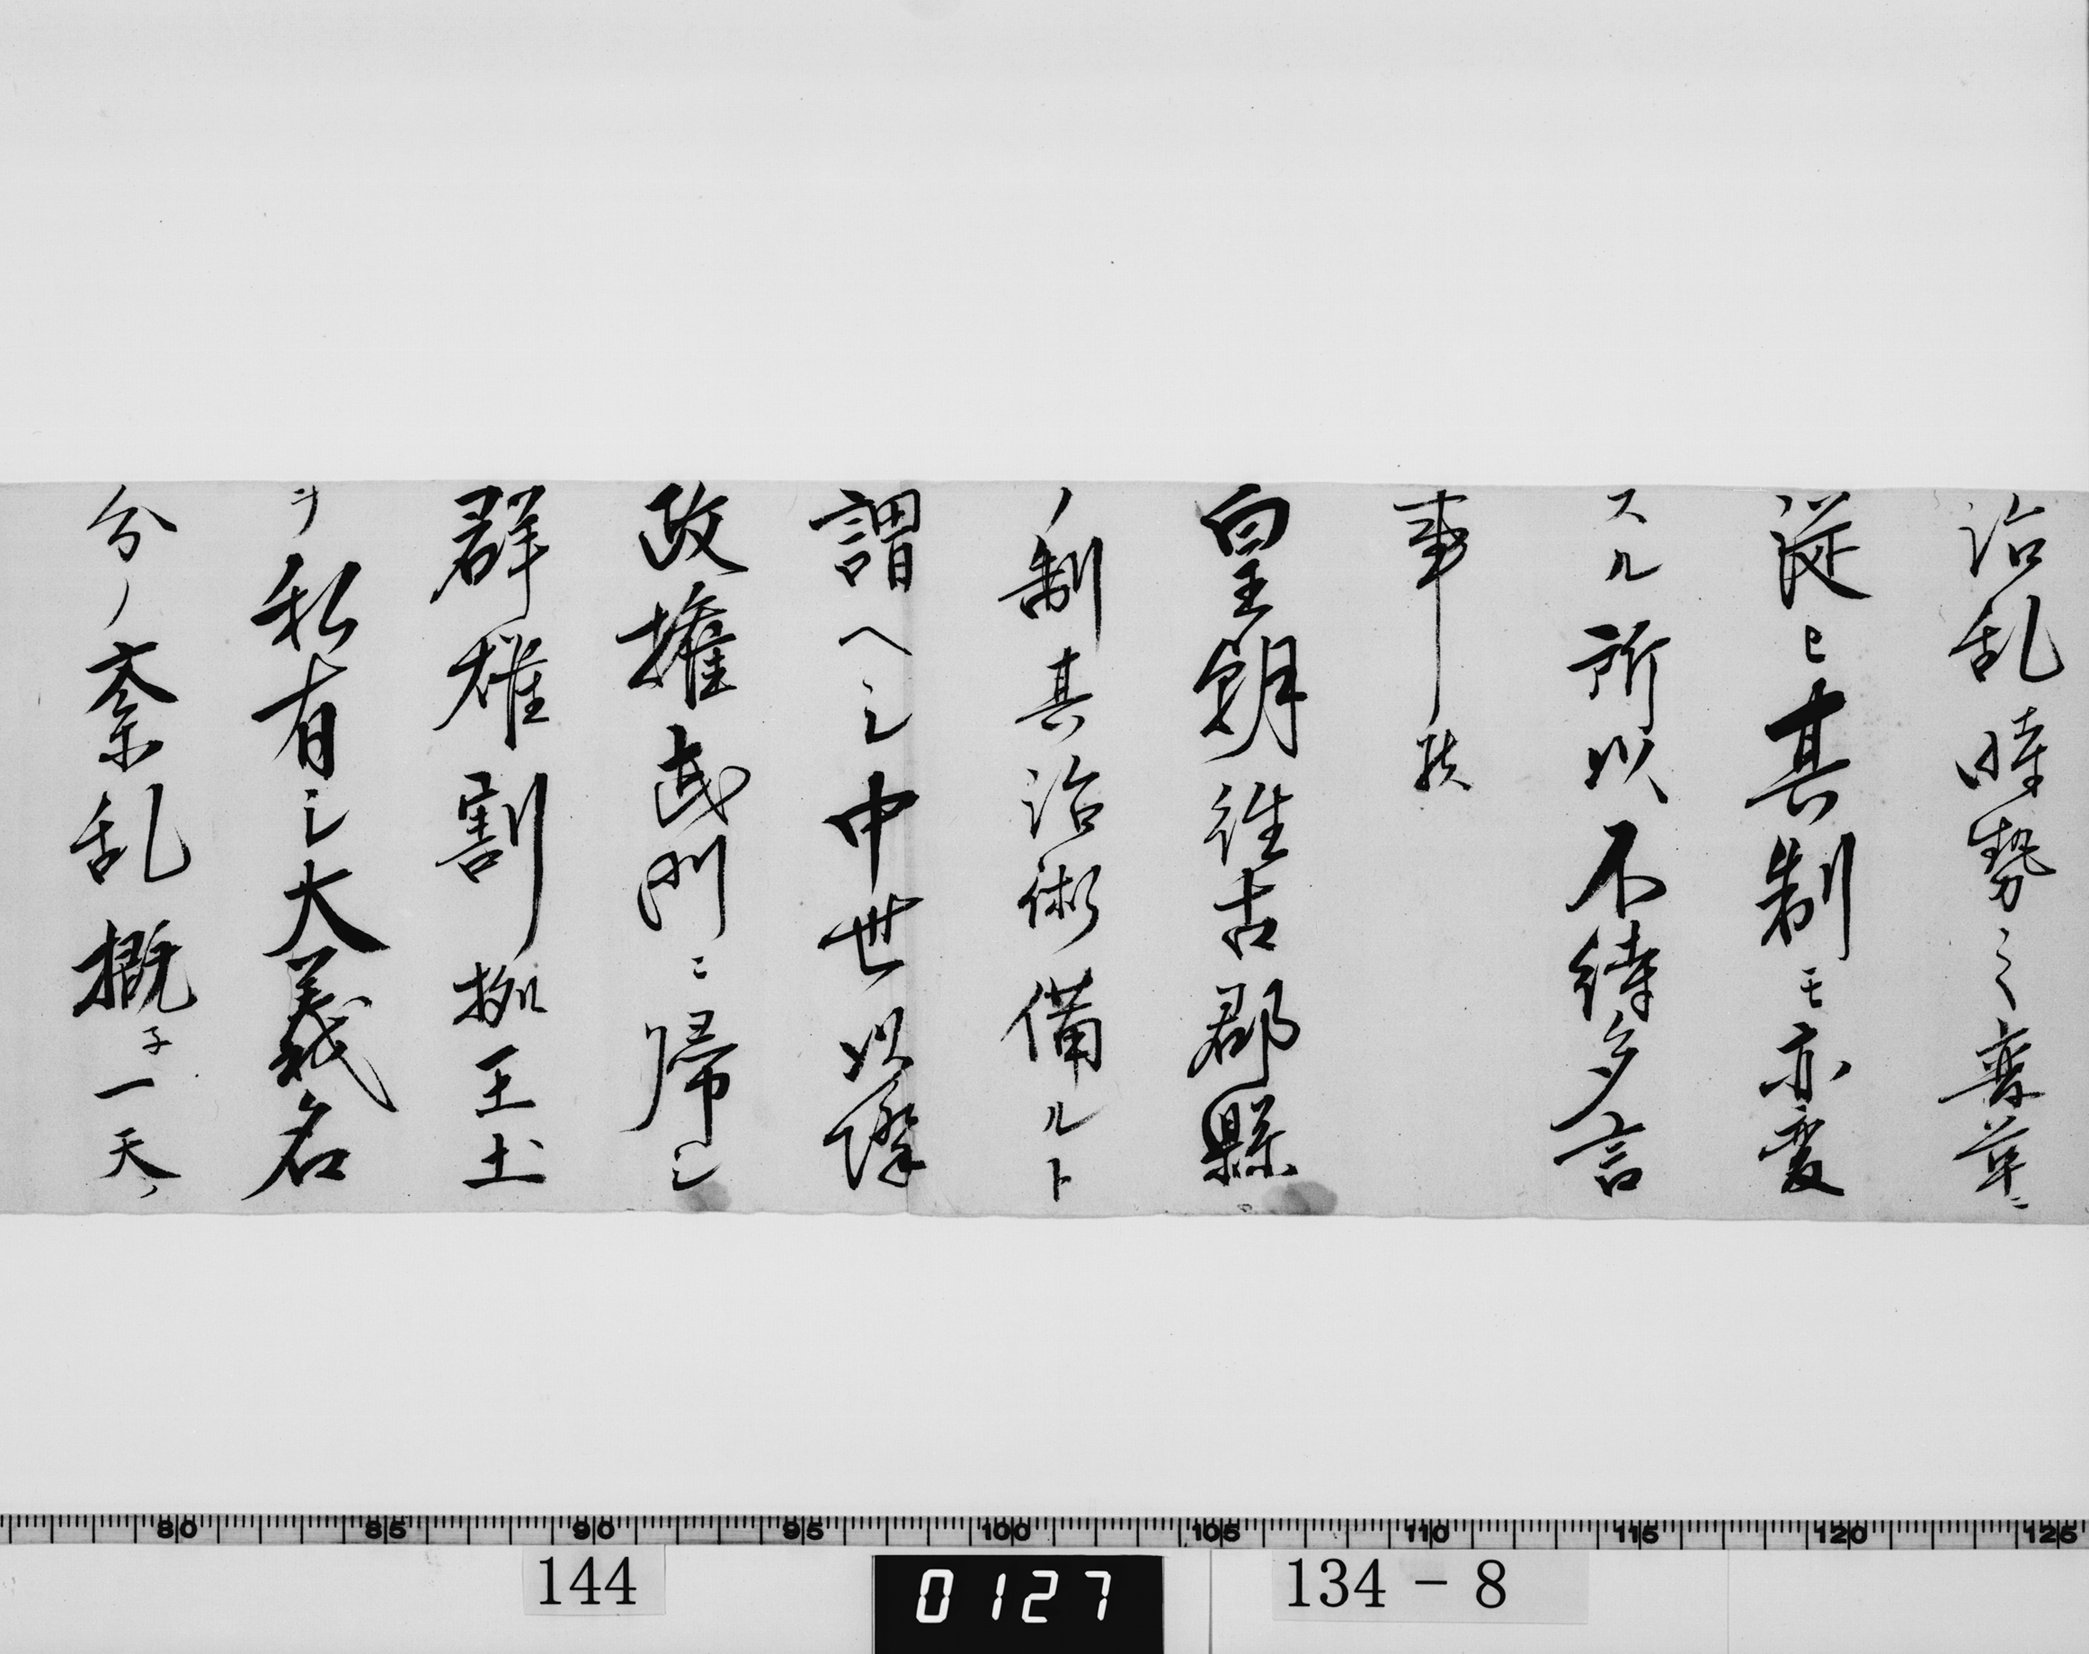 治乱時勢之變革ニ
従ヒ其制モ亦変
スル所以不待多言
事歟
皇朝往古郡縣
ノ制其治術備ルト
謂ヘシ中世以降
政権武門ニ帰シ
群雄割拠王土
ヲ私有シ大義名
分ノ紊乱概子一天
80 85 90 95 100 105 110 115 120 125
144 0127 134-8